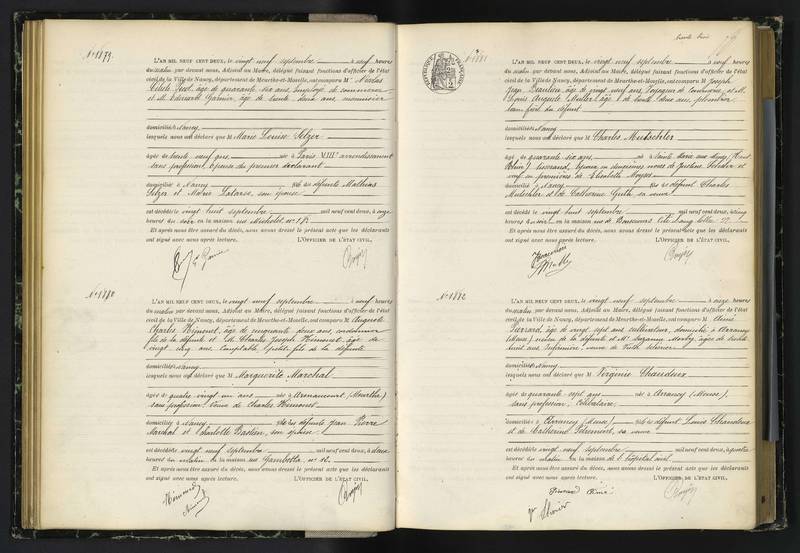 N° 1879.
L'AN MIL NEUF CENT DEUX, le vingt neuf septembre à neuf heures
du matin par devant nous, Adjoint au Maire, délégué faisant fonctions d'officier de l'état
civil de la Ville de Nancy, département de Meurthe-et-Moselle, ont comparu M Nicolas
âge de quarante six ans, employé de commerce
et M. Edouard Garnier, âge de trente deux ans menuisier
domiciliés à Nancy
lesquels nous ont déclaré que M Marie Louise Selzer
âgée de trente neuf ans née à Paris VIII° arrondissement
sans profession, épouse du premier déclarant
domiciliée à Nancy fille de défunts Mathias
Selzer et Marie Latarse, son épouse
est décédée le vingt huit septembre mil neuf cent deux, à onze
heures du soir en la maison rue Michelet, n°
Et après nous être assuré du décès, nous avons dressé le présent acte que les déclarants
ont signé avec nous après lecture. L'OFFICIER DE L'ÉTAT CIVIL,
N° 1880
L'AN MIL NEUF CENT DEUX, le vingt neuf septembre à neuf heures
du matin par devant nous, Adjoint au Maire, délégué faisant fonctions d'officier de l'état
civil de la Ville de Nancy, département de Meurthe-et-Moselle, ont comparu M Auguste
Charles Hémonet, âge de cinquante deux ans, cordonnier
fils de la défunte et M. Charles Joseph Hémonet, âge de
vingt cinq ans, comptable, petit-fils de la défunte
domiciliés à Nancy
lesquels nous ont déclaré que M Marguerite Marchal
âgée de quatre vingt un ans née à (Meurthe)
sans profession veuve de Charles Hémonet
domiciliée à Nancy fille de défunts Jean Pierre
Marchal et Charlotte Bastien, son épouse
est décédée le vingt neuf septembre mil neuf cent deux, à deux
heures du matin en la maison rue Gambetta, n°
Et après nous être assuré du décès, nous avons dressé le présent acte que les déclarants
ont signé avec nous après lecture. L'OFFICIER DE L'ÉTAT CIVIL,
N° 1881
L'AN MIL NEUF CENT DEUX, le vingt neuf septembre à neuf heures
du matin par devant nous, Adjoint au Maire, délégué faisant fonctions d'officier de l'état
civil de la Ville de Nancy, département de Meurthe-et-Moselle, ont comparu M Joseph
Jean Beaulieu, âge de vingt neuf ans, voyageur de commerce, et M.
Louis Auguste Muller, âge de trente deux ans, plombier
beau frère du défunt
domiciliés à Nancy
lesquels nous ont déclaré que M Charles Mutschler
âgé de quarante six ans né à Sainte Marie aux Mines (Haut
Rhin) tisserand, époux en deuxièmes noces de Justine
veuf en premières de Elisabeth
domicilié à Nancy fils de défunt Charles
Mutschler et de Catherine sa veuve
est décédé le vingt huit septembre mil neuf cent deux, à cinq
heures du soir en la maison rue de
Et après nous être assuré du décès, nous avons dressé le présent acte que les déclarants
ont signé avec nous après lecture. L'OFFICIER DE L'ÉTAT CIVIL,
N° 1882
L'AN MIL NEUF CENT DEUX, le vingt neuf septembre à onze heures
du matin par devant nous, Adjoint au Maire, délégué faisant fonctions d'officier de l'état
civil de la Ville de Nancy, département de Meurthe-et-Moselle, ont comparu M Aimé
âge de vingt sept ans cultivateur, domicilié à Arrancy
(Meuse), neveu de la défunte et Me Suzanne âgée de trente
huit ans, infirmière, veuve de
domiciliés à Nancy
lesquels nous ont déclaré que M Virginie Chaudeux
âgée de quarante sept ans née à Arrancy (Meuse),
sans profession, célibataire
domiciliée à Arrancy (Meuse) fille de défunt Louis Chaudeux
et de Catherine sa veuve
est décédée le vingt neuf septembre mil neuf cent deux, à quatre
heures du matin en la maison de l'hôpital civil
Et après nous être assuré du décès, nous avons dressé le présent acte que les déclarants
ont signé avec nous après lecture. L'OFFICIER DE L'ÉTAT CIVIL,